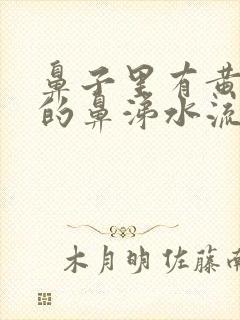 鼻子里有黄
的鼻涕水流
木月明佐藤南